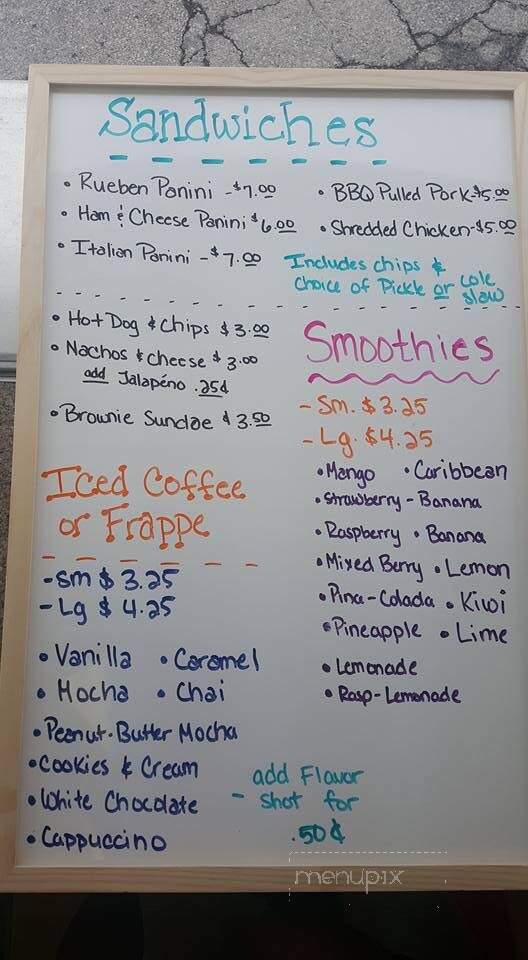 Sandwiches
• Rueben Panini - $7.00
• Ham & Cheese Panini $6.00
• Italian Panini - $7.00
• BBQ Pulled Pork - $5.00
• Shredded Chicken - $5.00
Includes chips &
choice of Pickle or cole
slaw
• Hot Dog & Chips $3.00
• Nachos & cheese $3.00
add Jalapéno .25¢
• Brownie Sundae $3.50
Smoothies
- Sm. $3.25
- Lg. $4.25
• Mango • Caribbean
• Strawberry - Banana
• Raspberry • Banana
• Mixed Berry • Lemon
• Pina-Colada • Kiwi
• Pineapple • Lime
• Lemonade
• Rasp-Lemonade
Iced Coffee
or Frappe
- Sm $3.25
- Lg $4.25
• Vanilla • Caramel
• Mocha • Chai
• Peanut-Butter Mocha
• Cookies & Cream
• White Chocolate
• Cappuccino
add Flavor
- shot for
.50¢
menupix